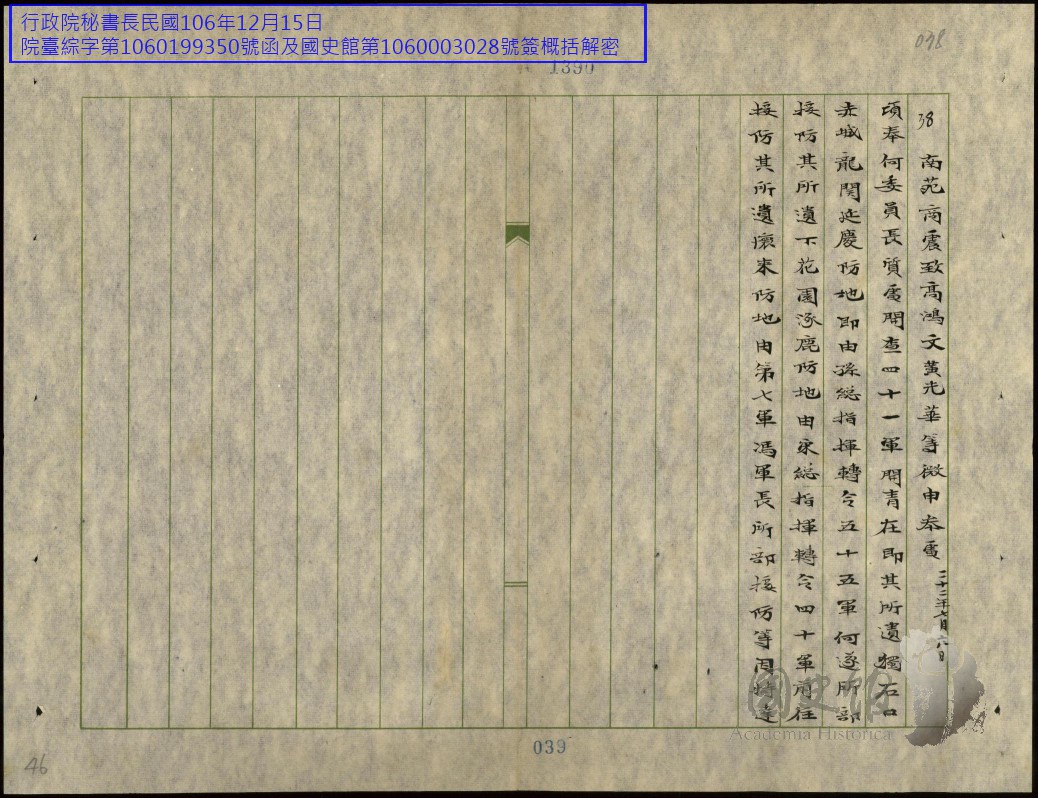 行政院秘書長民國106年12月15日
院臺綜字第1060199350號函及國史館第1060003028號簽概括解密
038
1390
38 南苑商震致高鴻文黃光華等微申叅電 二十二年七月六日
頃奉何委員長質電開查四十一軍開青在即其所遺獨石口
赤城龍関延慶防地即由孫総指揮轉令五十五軍何遂所部
接防其所遺下花園涿鹿防地由宋総指揮轉令四十軍前往
接防其所遺懷來防地由第七軍馮軍長所部接防等因特達
國史館
Academia Historica
039
46